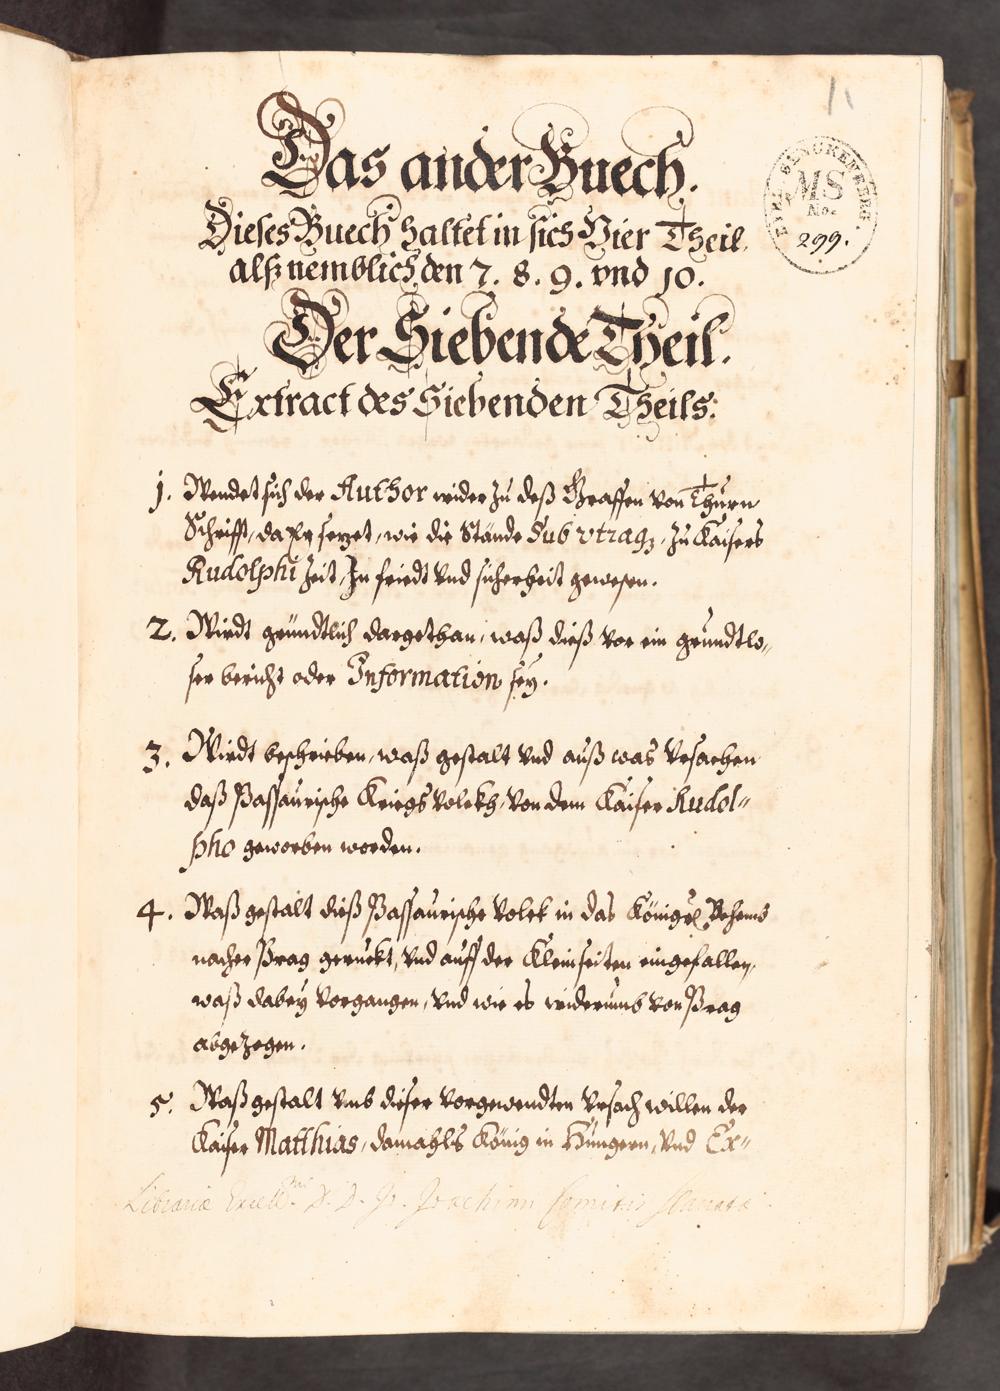 11
Das ander Buech.
BIBL. SENCKENBERG.
MS
No.
299.
Dieses Buech haltet in sich Vier Theil,
alß nemblich den 7. 8. 9. vnd 10.
Der Siebende Theil.
Extract des Siebenden Theils:
1. Wendet sich der Author wider zu deß Graffen von Thurn
Schrifft, da Er setzet, wie die Stände Sub vtraq3, zu Kaisers
Rudolphi Zeit, In friedt vnd sicherheit gewesen.
2. Wirdt gründtlich dargethan, waß dieß vor ein grundtlo„
ser bericht oder Information sey.
3. Wirdt beschrieben, waß gestalt vnd auß was vrsachen
daß Passaurische Kriegs Volckh, von dem Kaiser Rudol„
pho geworben worden.
4. Waß gestalt dieß Passaurische Volck in das Königr. Behemb
nacher Prag geruckt, vnd auff der Kleinseiten eingefallen,
waß dabey vorgangen, vnd wie es widerumb von Prag
abgezogen.
5. Waß gestalt vmb dieser vorgewendten vrsach willen der
Kaiser Matthias, damahls König in Hungern, vnd Ex„
Librariæ D. D. Joachimi Comitis Slavata